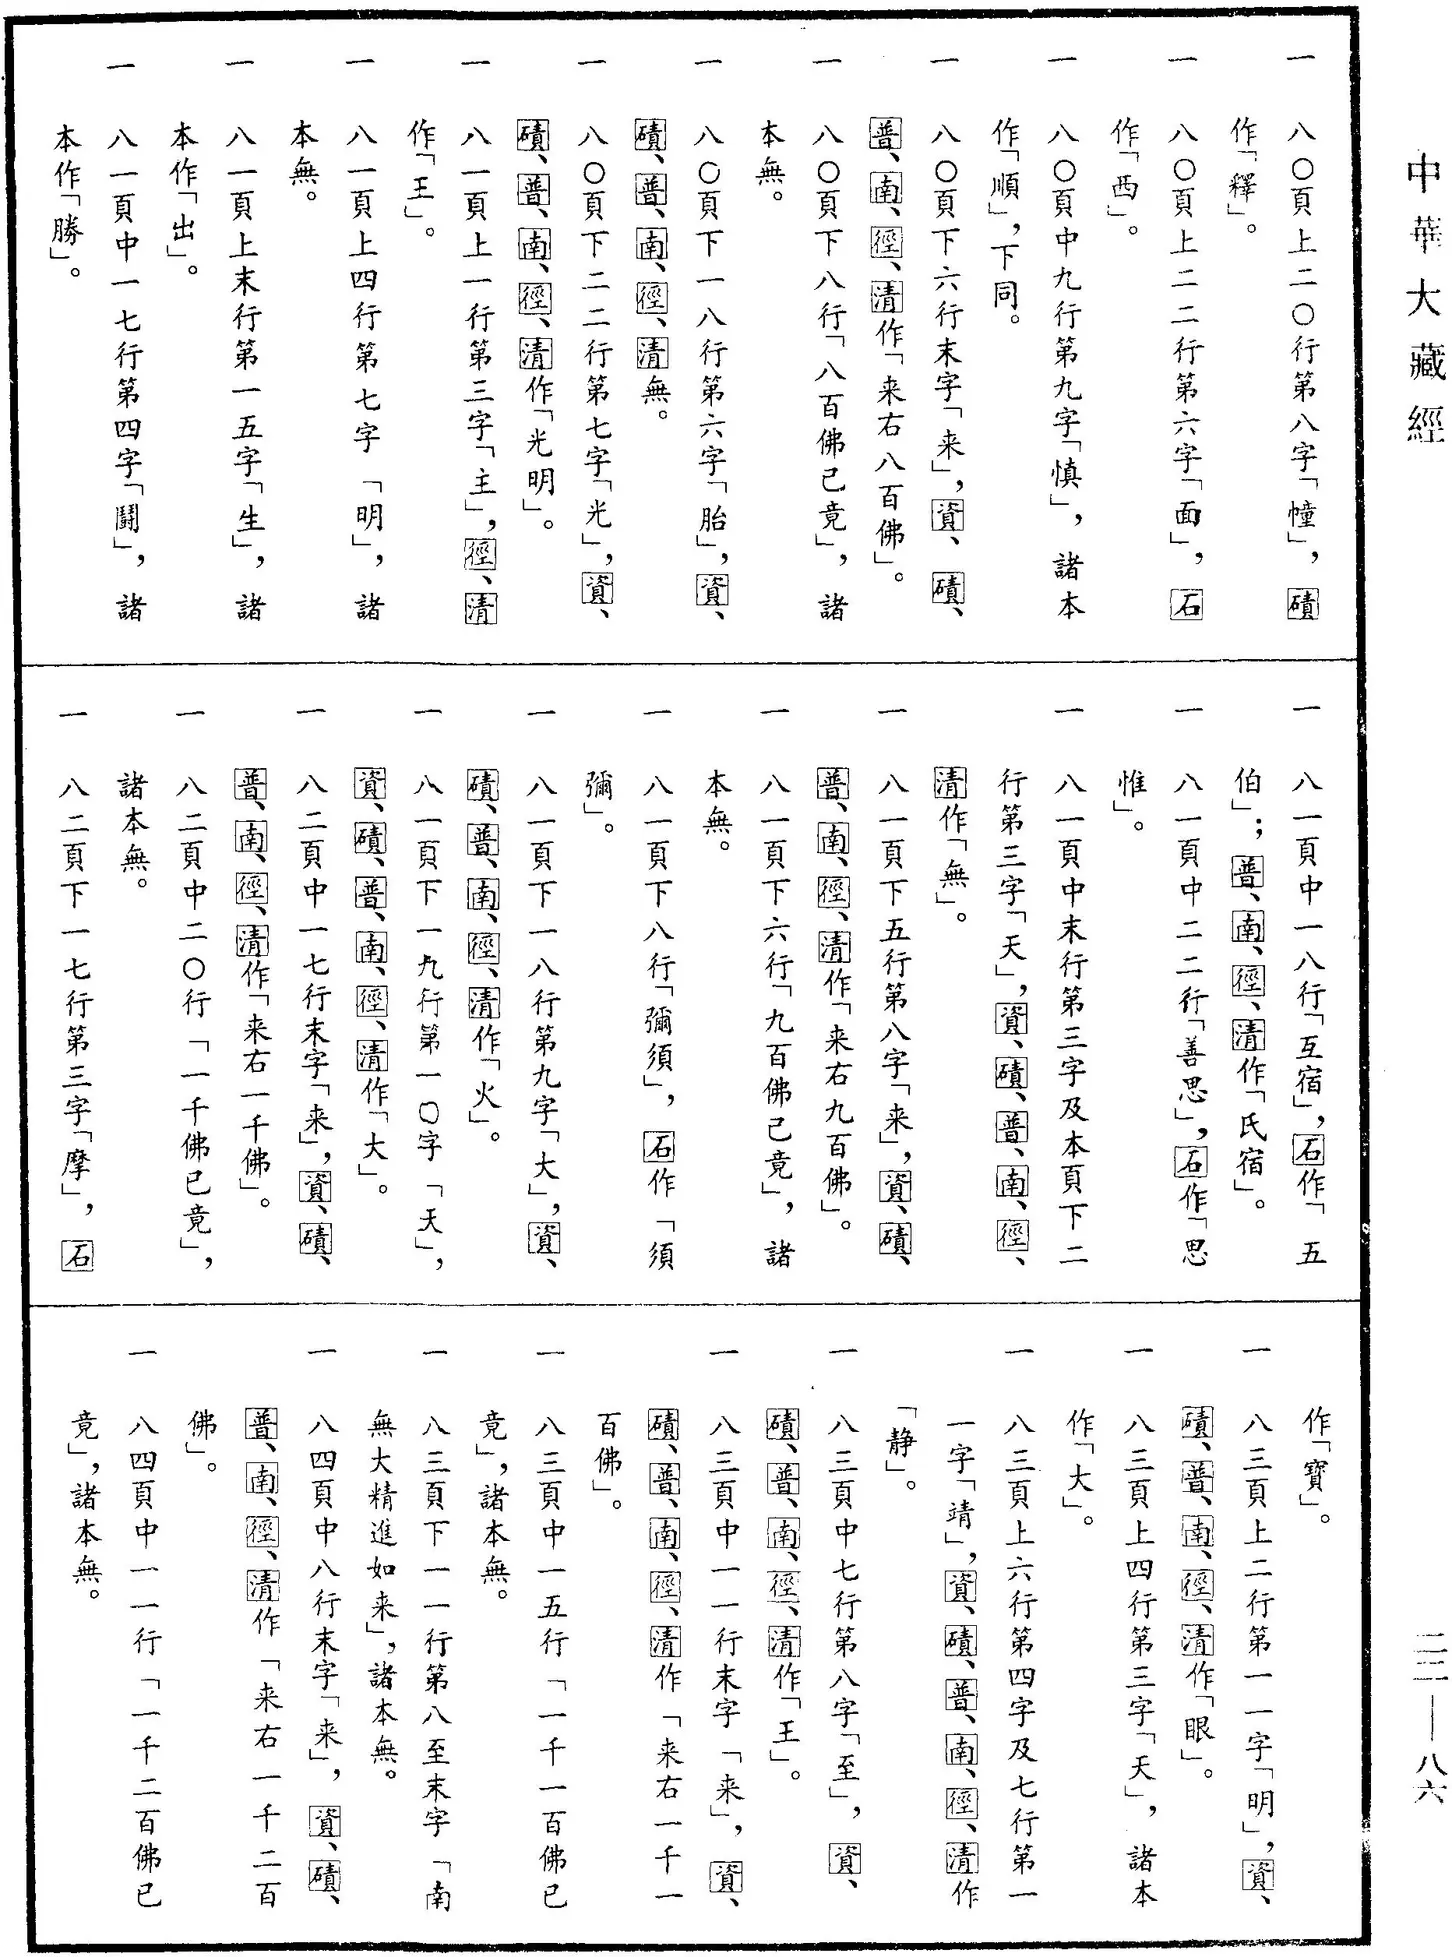 中華大藏經
一 八〇頁上二〇行第八字「幢」，磧
作「釋」。
一 八〇頁上二二行第六字「面」，石
作「西」。
一 八〇頁中九行第九字「慎」，諸本
作「順」，下同。
一 八〇頁下六行末字「来」，資、磧、
普、南、徑、清作「来右八百佛」。
一 八〇頁下八行「八百佛已竟」，諸
本無。
一 八〇頁下一八行第六字「胎」，資、
磧、普、南、徑、清無。
一 八〇頁下二二行第七字「光」，資、
磧、普、南、徑、清作「光明」。
一 八一頁上一行第三字「主」，徑、清
作「王」。
一 八一頁上四行第七字「明」，諸
本無。
一 八一頁上末行第一五字「生」，諸
本作「出」。
一 八一頁中一七行第四字「鬪」，諸
本作「勝」。
一 八一頁中一八行「互宿」，石作「五
伯」；普、南、徑、清作「氏宿」。
一 八一頁中二二行「善思」，石作「思
惟」。
一 八一頁中末行第三字及本頁下二
行第三字「天」，資、磧、普、南、徑、
清作「無」。
一 八一頁下五行第八字「来」，資、磧、
普、南、徑、清作「来右九百佛」。
一 八一頁下六行「九百佛已竟」，諸
本無。
一 八一頁下八行「彌須」，石作「須
彌」。
一 八一頁下一八行第九字「大」，資、
磧、普、南、徑、清作「火」。
一 八一頁下一九行第一〇字「天」，
資、磧、普、南、徑、清作「大」。
一 八二頁中一七行末字「来」，資、磧、
普、南、徑、清作「来右一千佛」。
一 八二頁中二〇行「一千佛已竟」，
諸本無。
一 八二頁下一七行第三字「摩」，石
作「寶」。
一 八三頁上二行第一一字「明」，資、
磧、普、南、徑、清作「眼」。
一 八三頁上四行第三字「天」，諸本
作「大」。
一 八三頁上六行第四字及七行第一
一字「靖」，資、磧、普、南、徑、清作
「静」。
一 八三頁中七行第八字「至」，資、
磧、普、南、徑、清作「王」。
一 八三頁中一一行末字「来」，資、
磧、普、南、徑、清作「来右一千一
百佛」。
一 八三頁中一五行「一千一百佛已
竟」，諸本無。
一 八三頁下一一行第八至末字「南
無大精進如来」，諸本無。
一 八四頁中八行末字「来」，資、磧、
普、南、徑、清作「来右一千二百
佛」。
一 八四頁中一一行「一千二百佛已
竟」，諸本無。
二二——八六